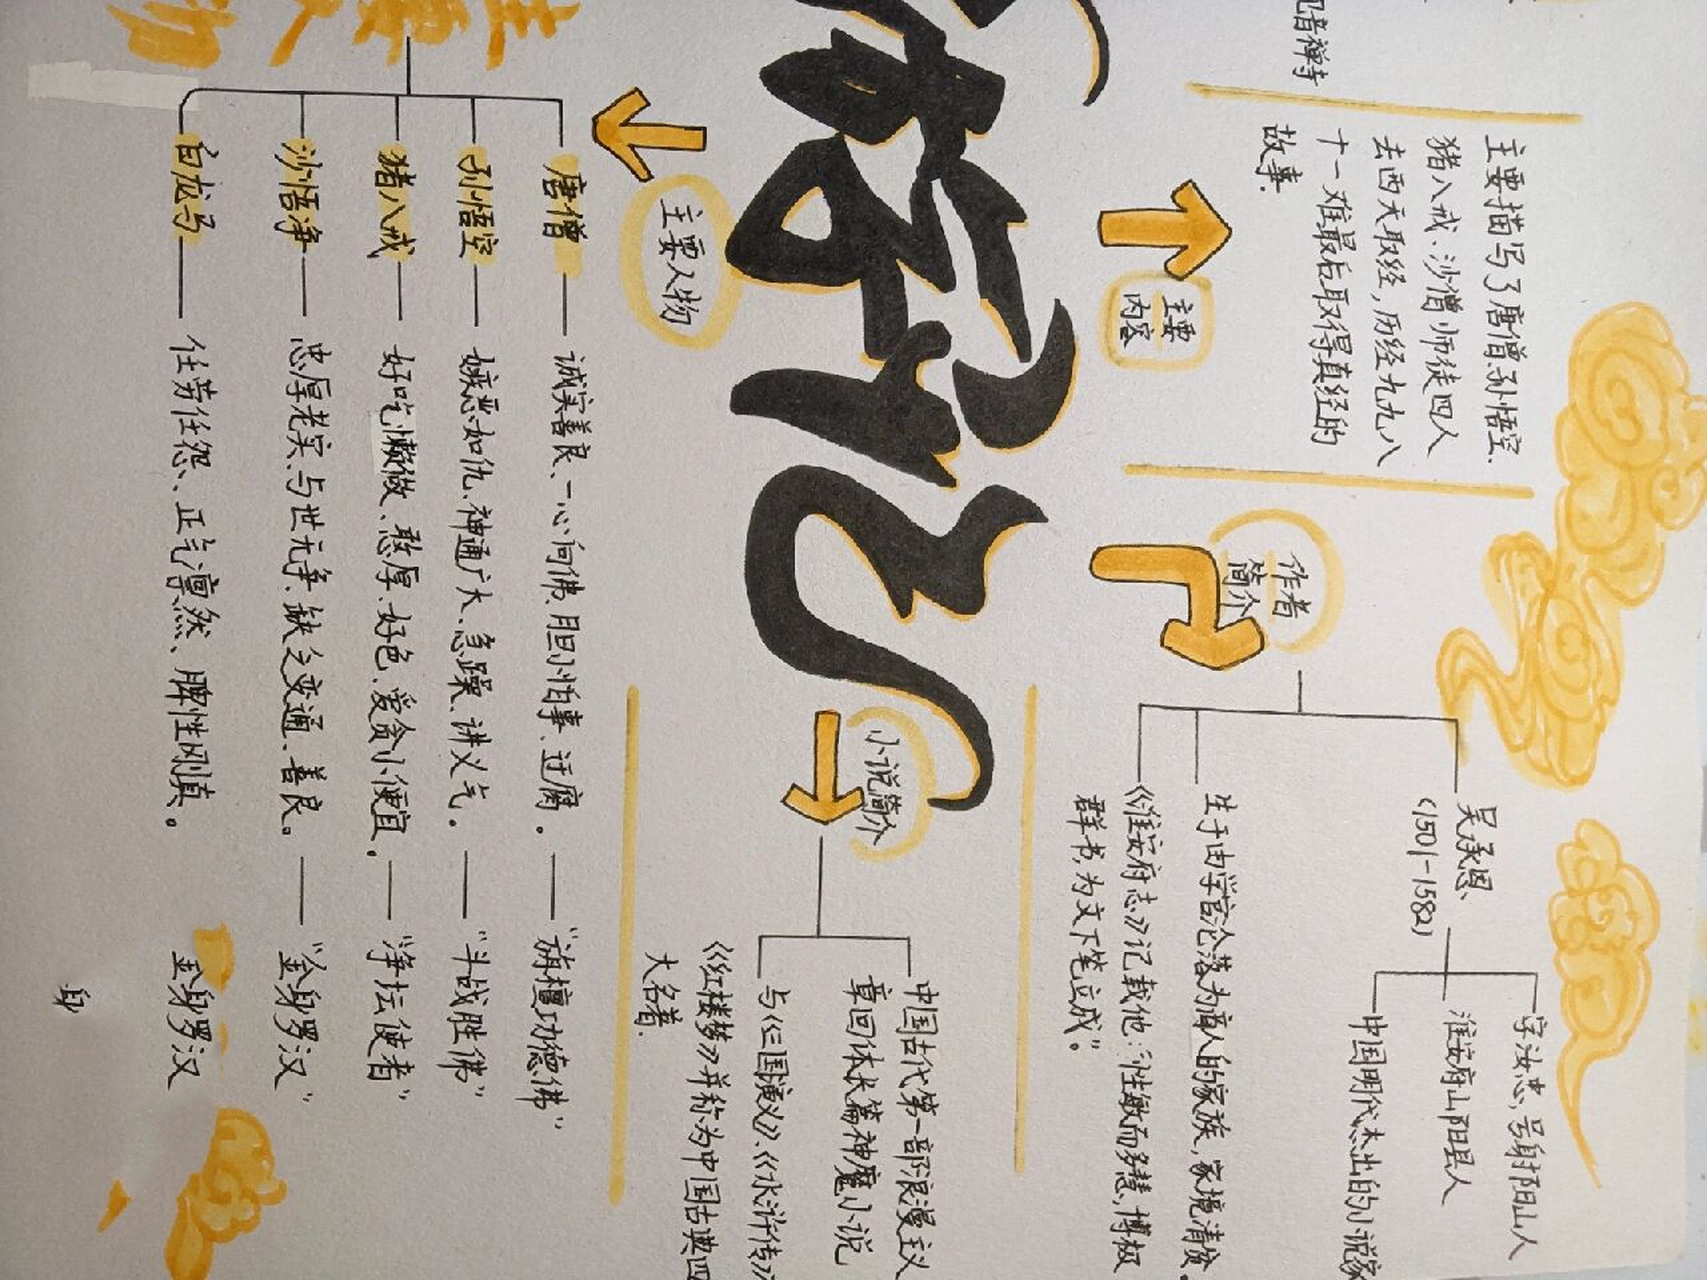 观音禅寺
主要描写了唐僧、孙悟空、
猪八戒、沙僧师徒四人
去西天取经,历经九九八
十一难最后取得真经的
故事.
主要
内容
作者
简介
吴承恩
(1501-1582)
字汝忠,号射阳山人
淮安府山阳县人
中国明代杰出的小说家
生于由学官沦落为商人的家族,家境清贫.
《淮安府志》记载他:“性敏而多慧,博极
群书,为文下笔立成”。
游记
小说简介
中国古代第一部浪漫主义
章回体长篇神魔小说
与《三国演义》、《水浒传》
《红楼梦》并称为中国古典四
大名著.
主要人物
唐僧——诚实善良、一心向佛、胆小怕事、迂腐。——“旃檀功德佛”
孙悟空——嫉恶如仇、神通广大、急躁、讲义气。——“斗战胜佛”
猪八戒——好吃懒做、憨厚、好色、爱贪小便宜。——“净坛使者”
沙悟净——忠厚老实、与世无争、缺乏变通、善良。——“金身罗汉”
白龙马——任劳任怨、正气凛然、脾性刚真。 金身罗汉
身